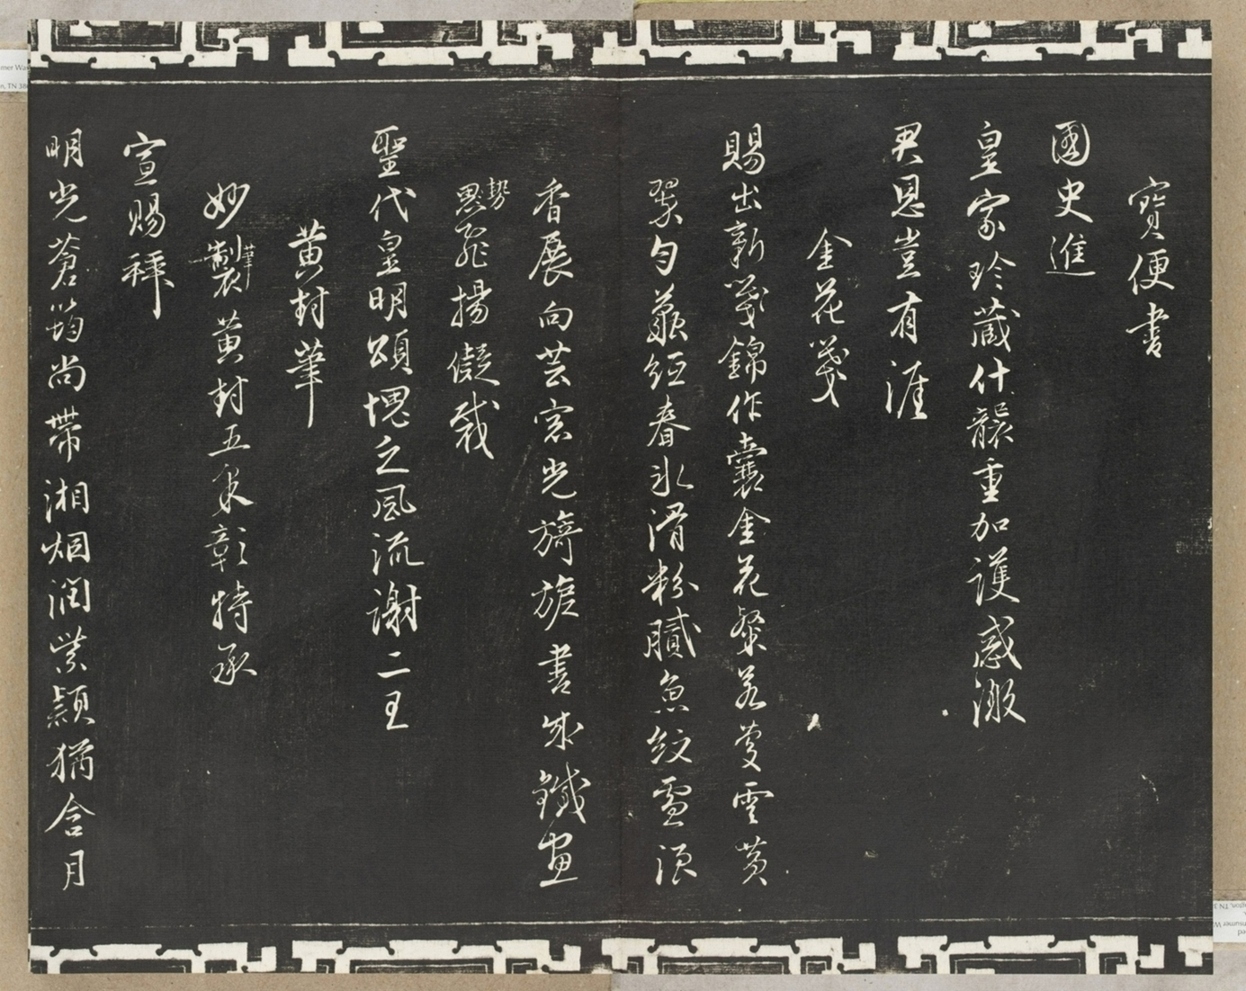 寶便書
國史進
皇家珍藏什襲重加護感激
君恩豈有涯
金花箋
賜出新箋錦作囊金花粲若蔓雲黃
翠勻藤紙春冰滑粉膩魚紋雪浪
香展向芸窗光旖旎書成鐵畫
勢飛揚儗裁
聖代皇明頌愧乏風流謝二王
黃封筆
妙製黃封五采彰特承
宣賜拜
明光蒼筠尚帶湘烟潤紫穎猶含月